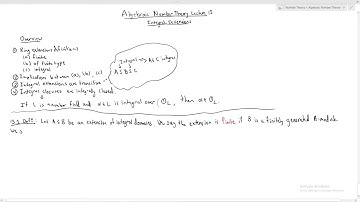 Number Theory > Algebraic Number Theory
Algebraic Number Theory Lecture 13
Integral Extensions
Overview
① Ring extension definitions
(a) finite
(b) of finite type
(c) integral
Integral ⇒ A⊆C integral
A ⊆ B ⊆ C
② Implications between (a), (b), (c)
③ Integral extensions are transitive
④ Integral closures are integrally closed.
If L is number field and α∈L is integral over O_L, then α∈O_L.
Let A⊆B be an extension of integral domains. We say the extension is finite if B is a finitely generated A-module
We s